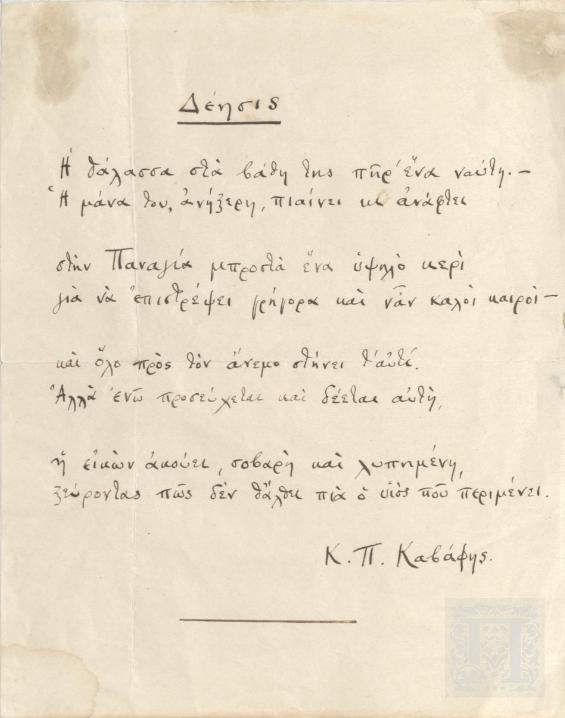 Δέησις
Ἡ θάλασσα στὰ βάθη της πῆρ' ἕναν ναύτη.—
Ἡ μάνα του, ἀνήξερη, πιαίνει κι ἀνάφτει
στὴν Παναγία μπροστὰ ἕνα ὑψηλὸ κερὶ
γιὰ νὰ ἐπιστρέψει γρήγορα καὶ νἆν καλοὶ καιροὶ—
καὶ ὅλο πρὸς τὸν ἄνεμο στήνει τ' αὐτί.
Ἀλλὰ ἐνῶ προσεύχεται καὶ δέεται αὐτή,
ἡ εἰκὼν ἀκούει, σοβαρὴ καὶ λυπημένη,
ξεύροντας πῶς δὲν θἄλθει πιὰ ὁ υἱὸς ποῦ περιμένει.
Κ. Π. Καβάφης.
Π